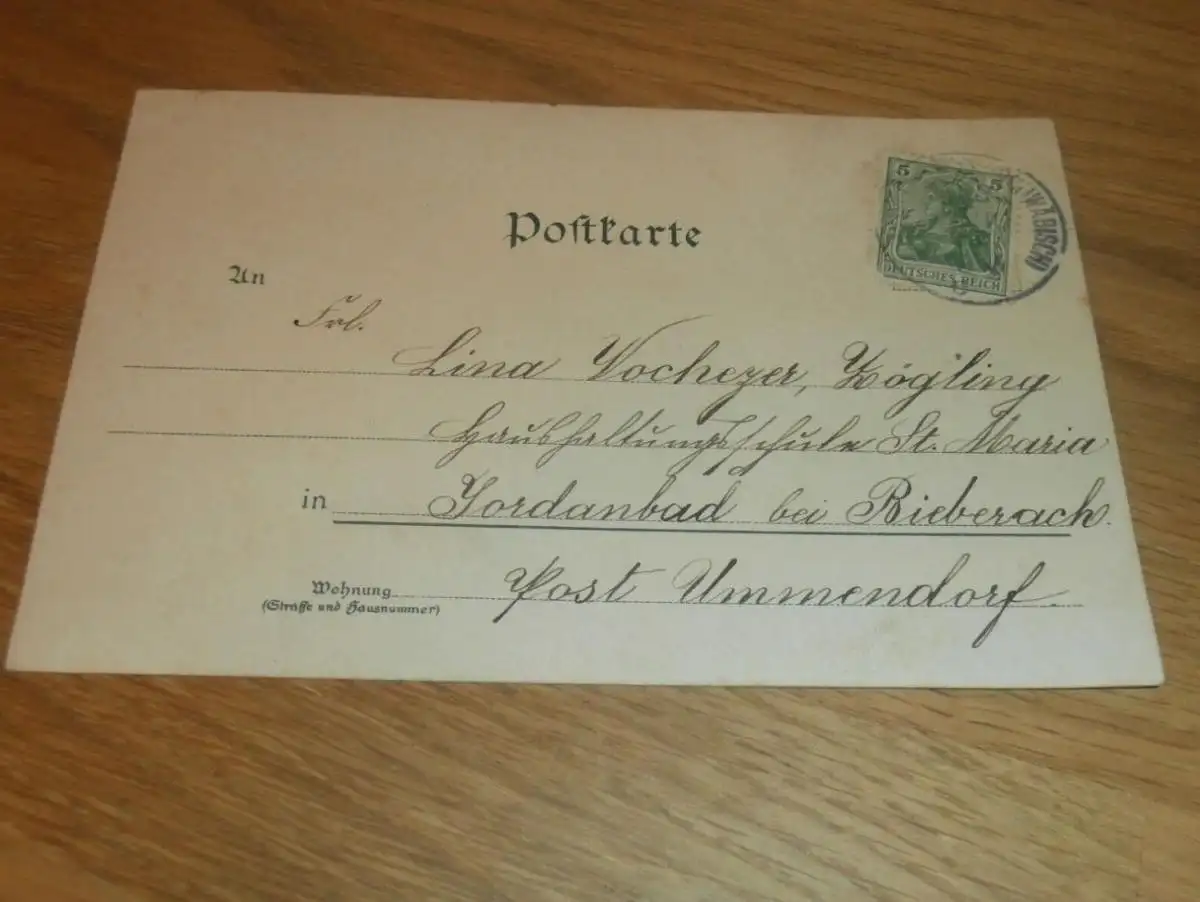 Postkarte
5 5
DEUTSCHES REICH
An
Frl.
Lina Vochezer, Zögling
Haushaltungsschule St. Maria
in Jordanbad bei Bieberach.
Wohnung Post Ummendorf.
(Straße und Hausnummer)